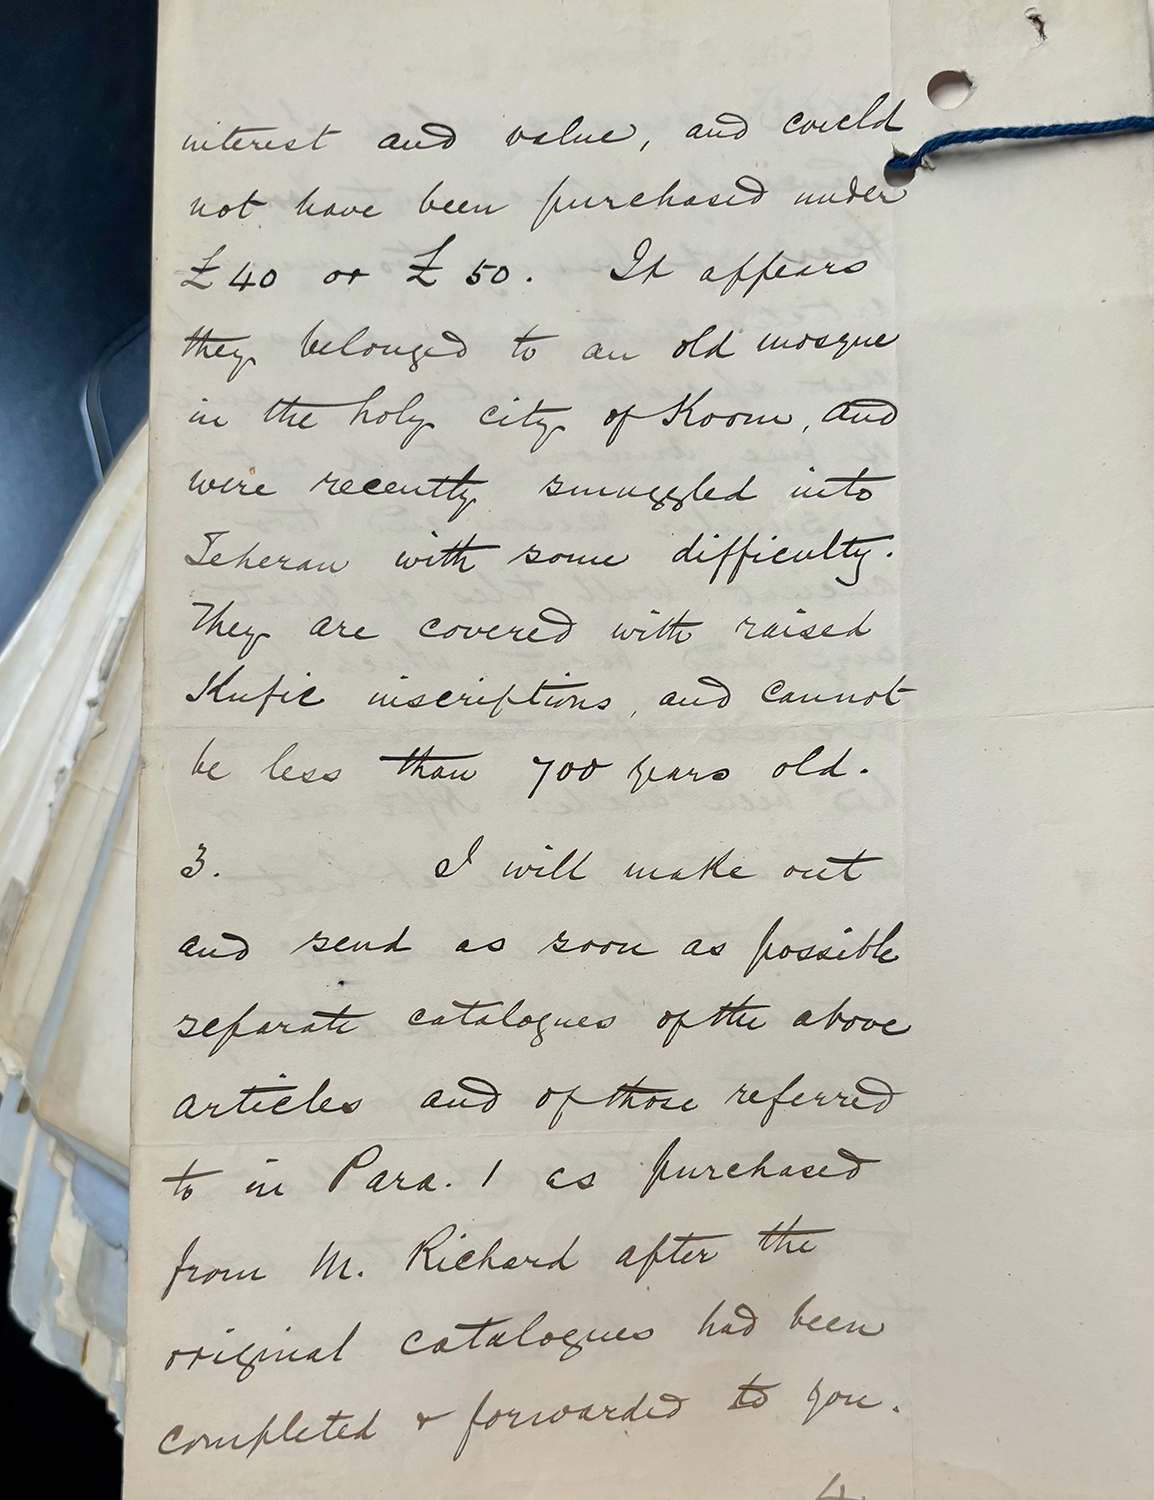 interest and value, and could
not have been purchased under
£40 or £50. It appears
they belonged to an old mosque
in the holy city of Koom, and
were recently smuggled into
Teheran with some difficulty.
They are covered with raised
Kufic inscriptions, and cannot
be less than 700 years old.
3. I will make out
and send as soon as possible
separate catalogues of the above
articles and of those referred
to in Para. 1 as purchased
from M. Richard after the
original catalogues had been
completed & forwarded to you.
4.